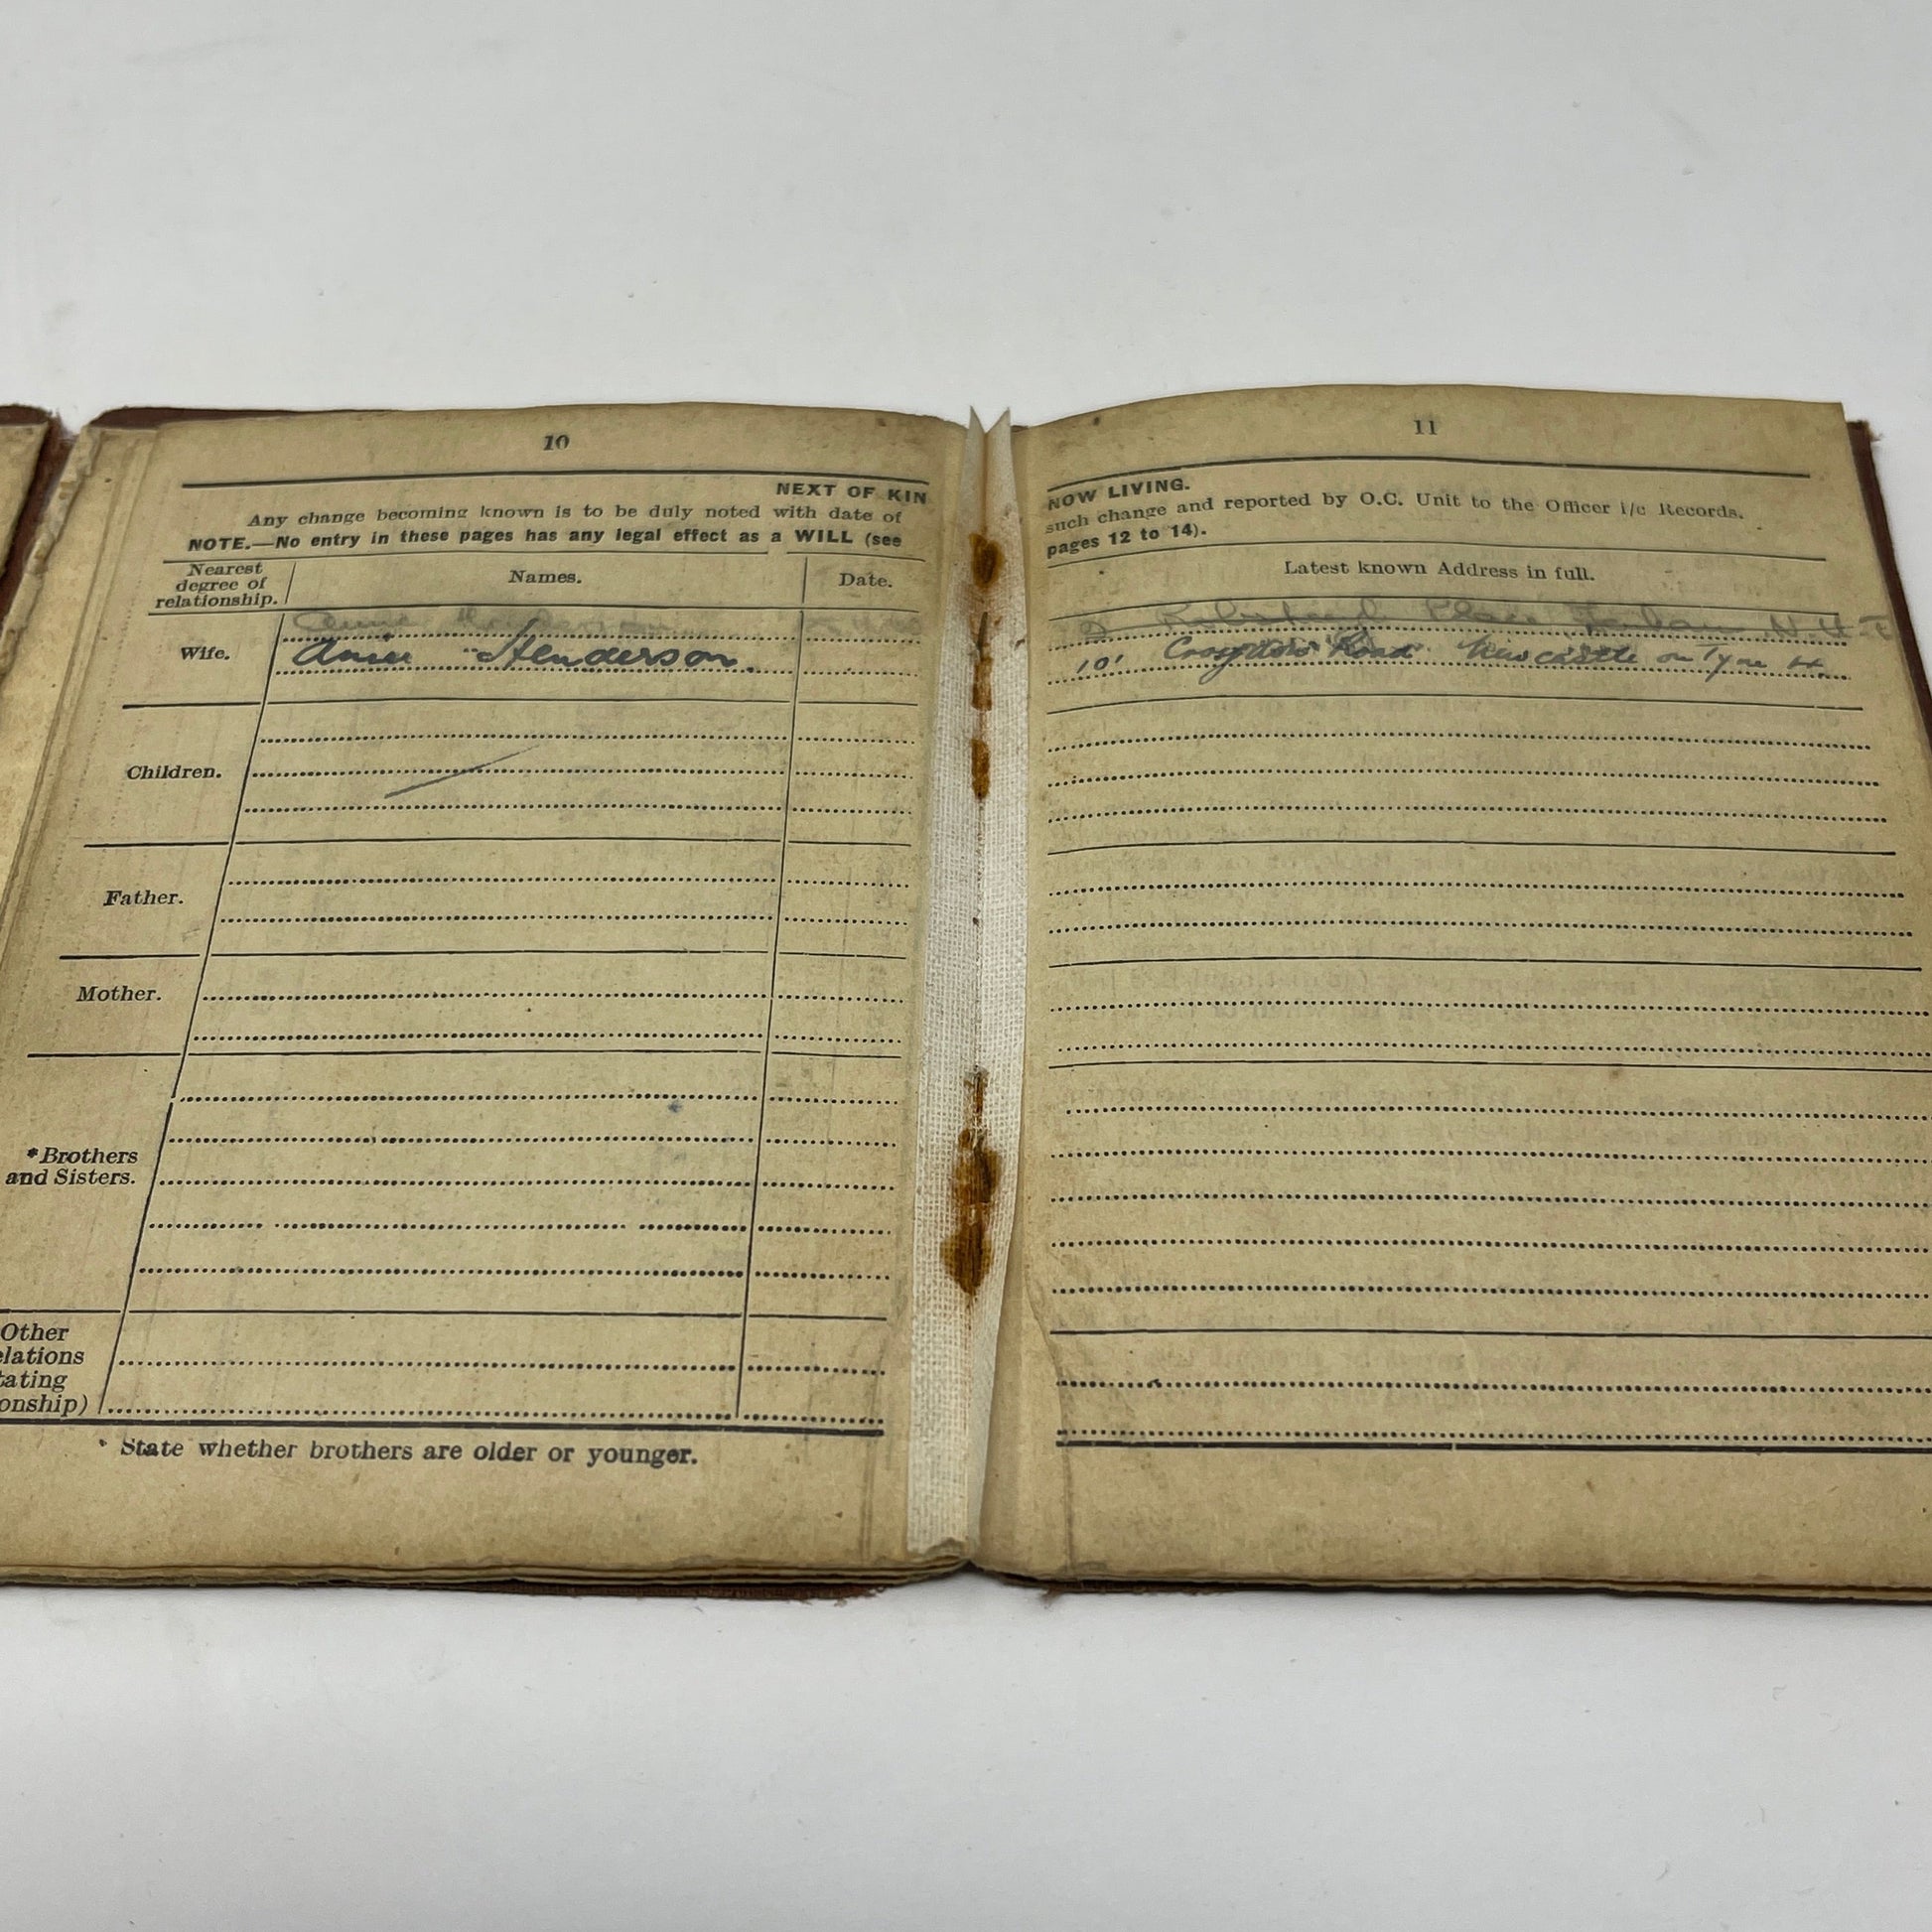 10
NEXT OF KIN
Any change becoming known is to be duly noted with date of
NOTE.—No entry in these pages has any legal effect as a WILL (see
Nearest degree of relationship.
Names.
Date.
Wife.
Annie Henderson
Annie Henderson.
Children.
Father.
Mother.
*Brothers
and Sisters.
Other
elations
tating
onship)
* State whether brothers are older or younger.
11
NOW LIVING.
such change and reported by O.C. Unit to the Officer i/c Records.
pages 12 to 14).
Latest known Address in full.
Place
101 Croydon Road Newcastle on Tyne 4